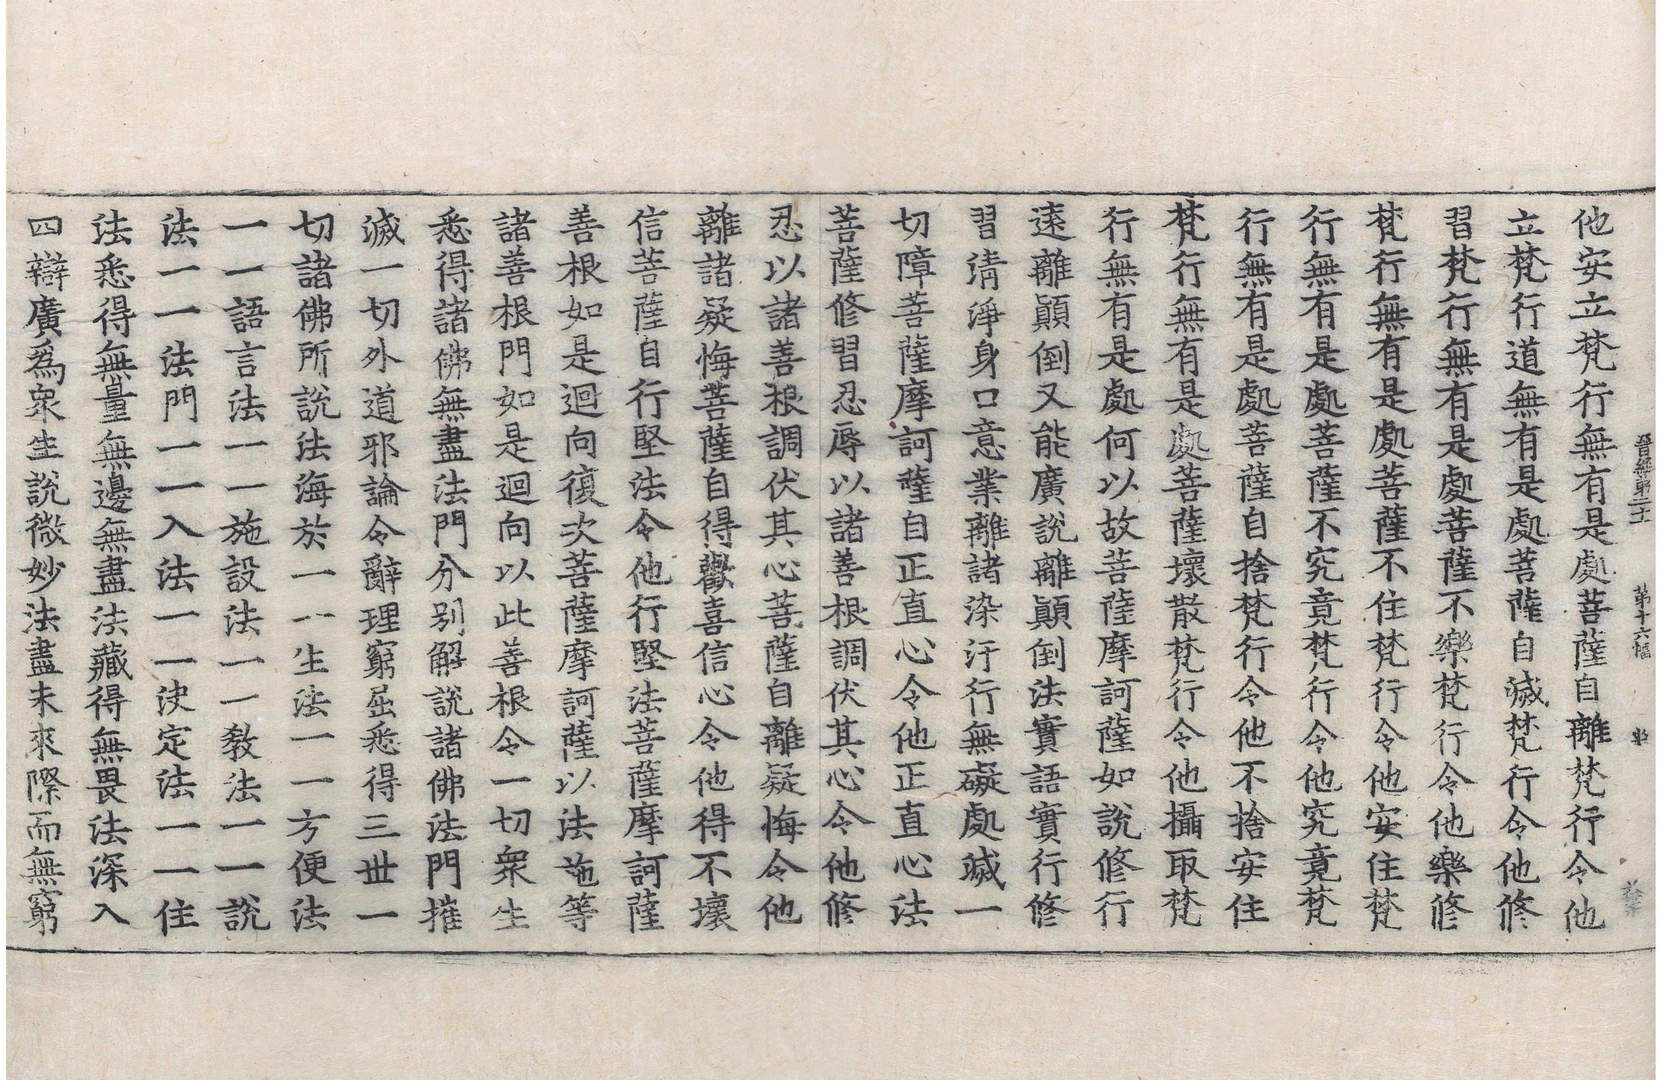 晉經第二十 第十六幅
他安立梵行無有是處菩薩自離梵行令他
立梵行道無有是處菩薩自滅梵行令他修
習梵行無有是處菩薩不樂梵行令他樂修
梵行無有是處菩薩不住梵行令他安住梵
行無有是處菩薩不究竟梵行令他究竟梵
行無有是處菩薩自捨梵行令他不捨安住
梵行無有是處菩薩壞散梵行令他攝取梵
行無有是處何以故菩薩摩訶薩如說修行
遠離顚倒又能廣說離顚倒法實語實行修
習淸淨身口意業離諸染汙行無礙處滅一
切障菩薩摩訶薩自正直心令他正直心法
菩薩修習忍辱以諸善根調伏其心令他修
忍以諸善根調伏其心菩薩自離疑悔令他
離諸疑悔菩薩自得歡喜信心令他得不壞
信菩薩自行堅法令他行堅法菩薩摩訶薩
善根如是迴向復次菩薩摩訶薩以法施等
諸善根門如是迴向以此善根令一切衆生
悉得諸佛無盡法門分別解說諸佛法門摧
滅一切外道邪論令辭理窮屈悉得三世一
切諸佛所說法海於一一生法一一方便法
一一語言法一一施設法一一敎法一一說
法一一法門一一入法一一決定法一一住
法悉得無量無邊無盡法藏得無畏法深入
四辯廣爲衆生說微妙法盡未來際而無窮